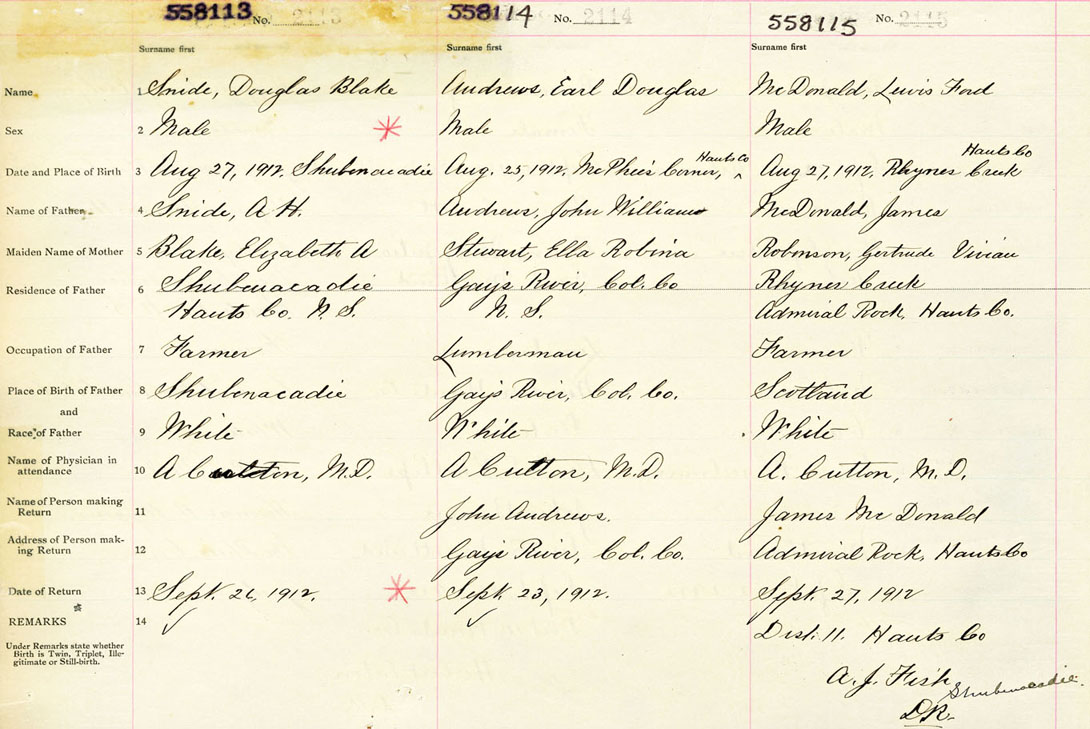 558113 No. 2113 558114 No. 2114 558115 No. 2115
Surname first Surname first Surname first
Name 1 Snide, Douglas Blake Andrews, Earl Douglas McDonald, Lewis Ford
Sex 2 Male * Male Male
Hants Co Hants Co
Date and Place of Birth 3 Aug 27, 1912. Shubenacadie Aug. 25, 1912. McPhee's Corner, ^ Aug 27, 1912. Rhynes Creek
Name of Father 4 Snide, A H. Andrews, John William McDonald, James
Maiden Name of Mother 5 Blake, Elizabeth A Stewart, Ella Robina Robinson, Gertrude Vivian
Residence of Father 6 Shubenacadie Gays River, Col. Co Rhynes Creek
Hants Co. N. S. N. S. Admiral Rock, Hants Co.
Occupation of Father 7 Farmer Lumberman Farmer
Place of Birth of Father 8 Shubenacadie Gays River, Col. Co. Scotland
and
Race of Father 9 White White White
Name of Physician in
attendance 10 A M.D. A Cutton, M.D. A. Cutton, M.D.
Name of Person making
Return 11 John Andrews. James McDonald
Address of Person mak-
ing Return 12 Gays River, Col. Co. Admiral Rock, Hants Co
Date of Return 13 Sept. 26, 1912. * Sept 23, 1912. Sept. 27, 1912
*
REMARKS 14
Dist. 11. Hants Co
Under Remarks state whether
Birth is Twin, Triplet, Ille-
gitimate or Still-birth.
A. J. Fish
Shubenacadie.
D.R.